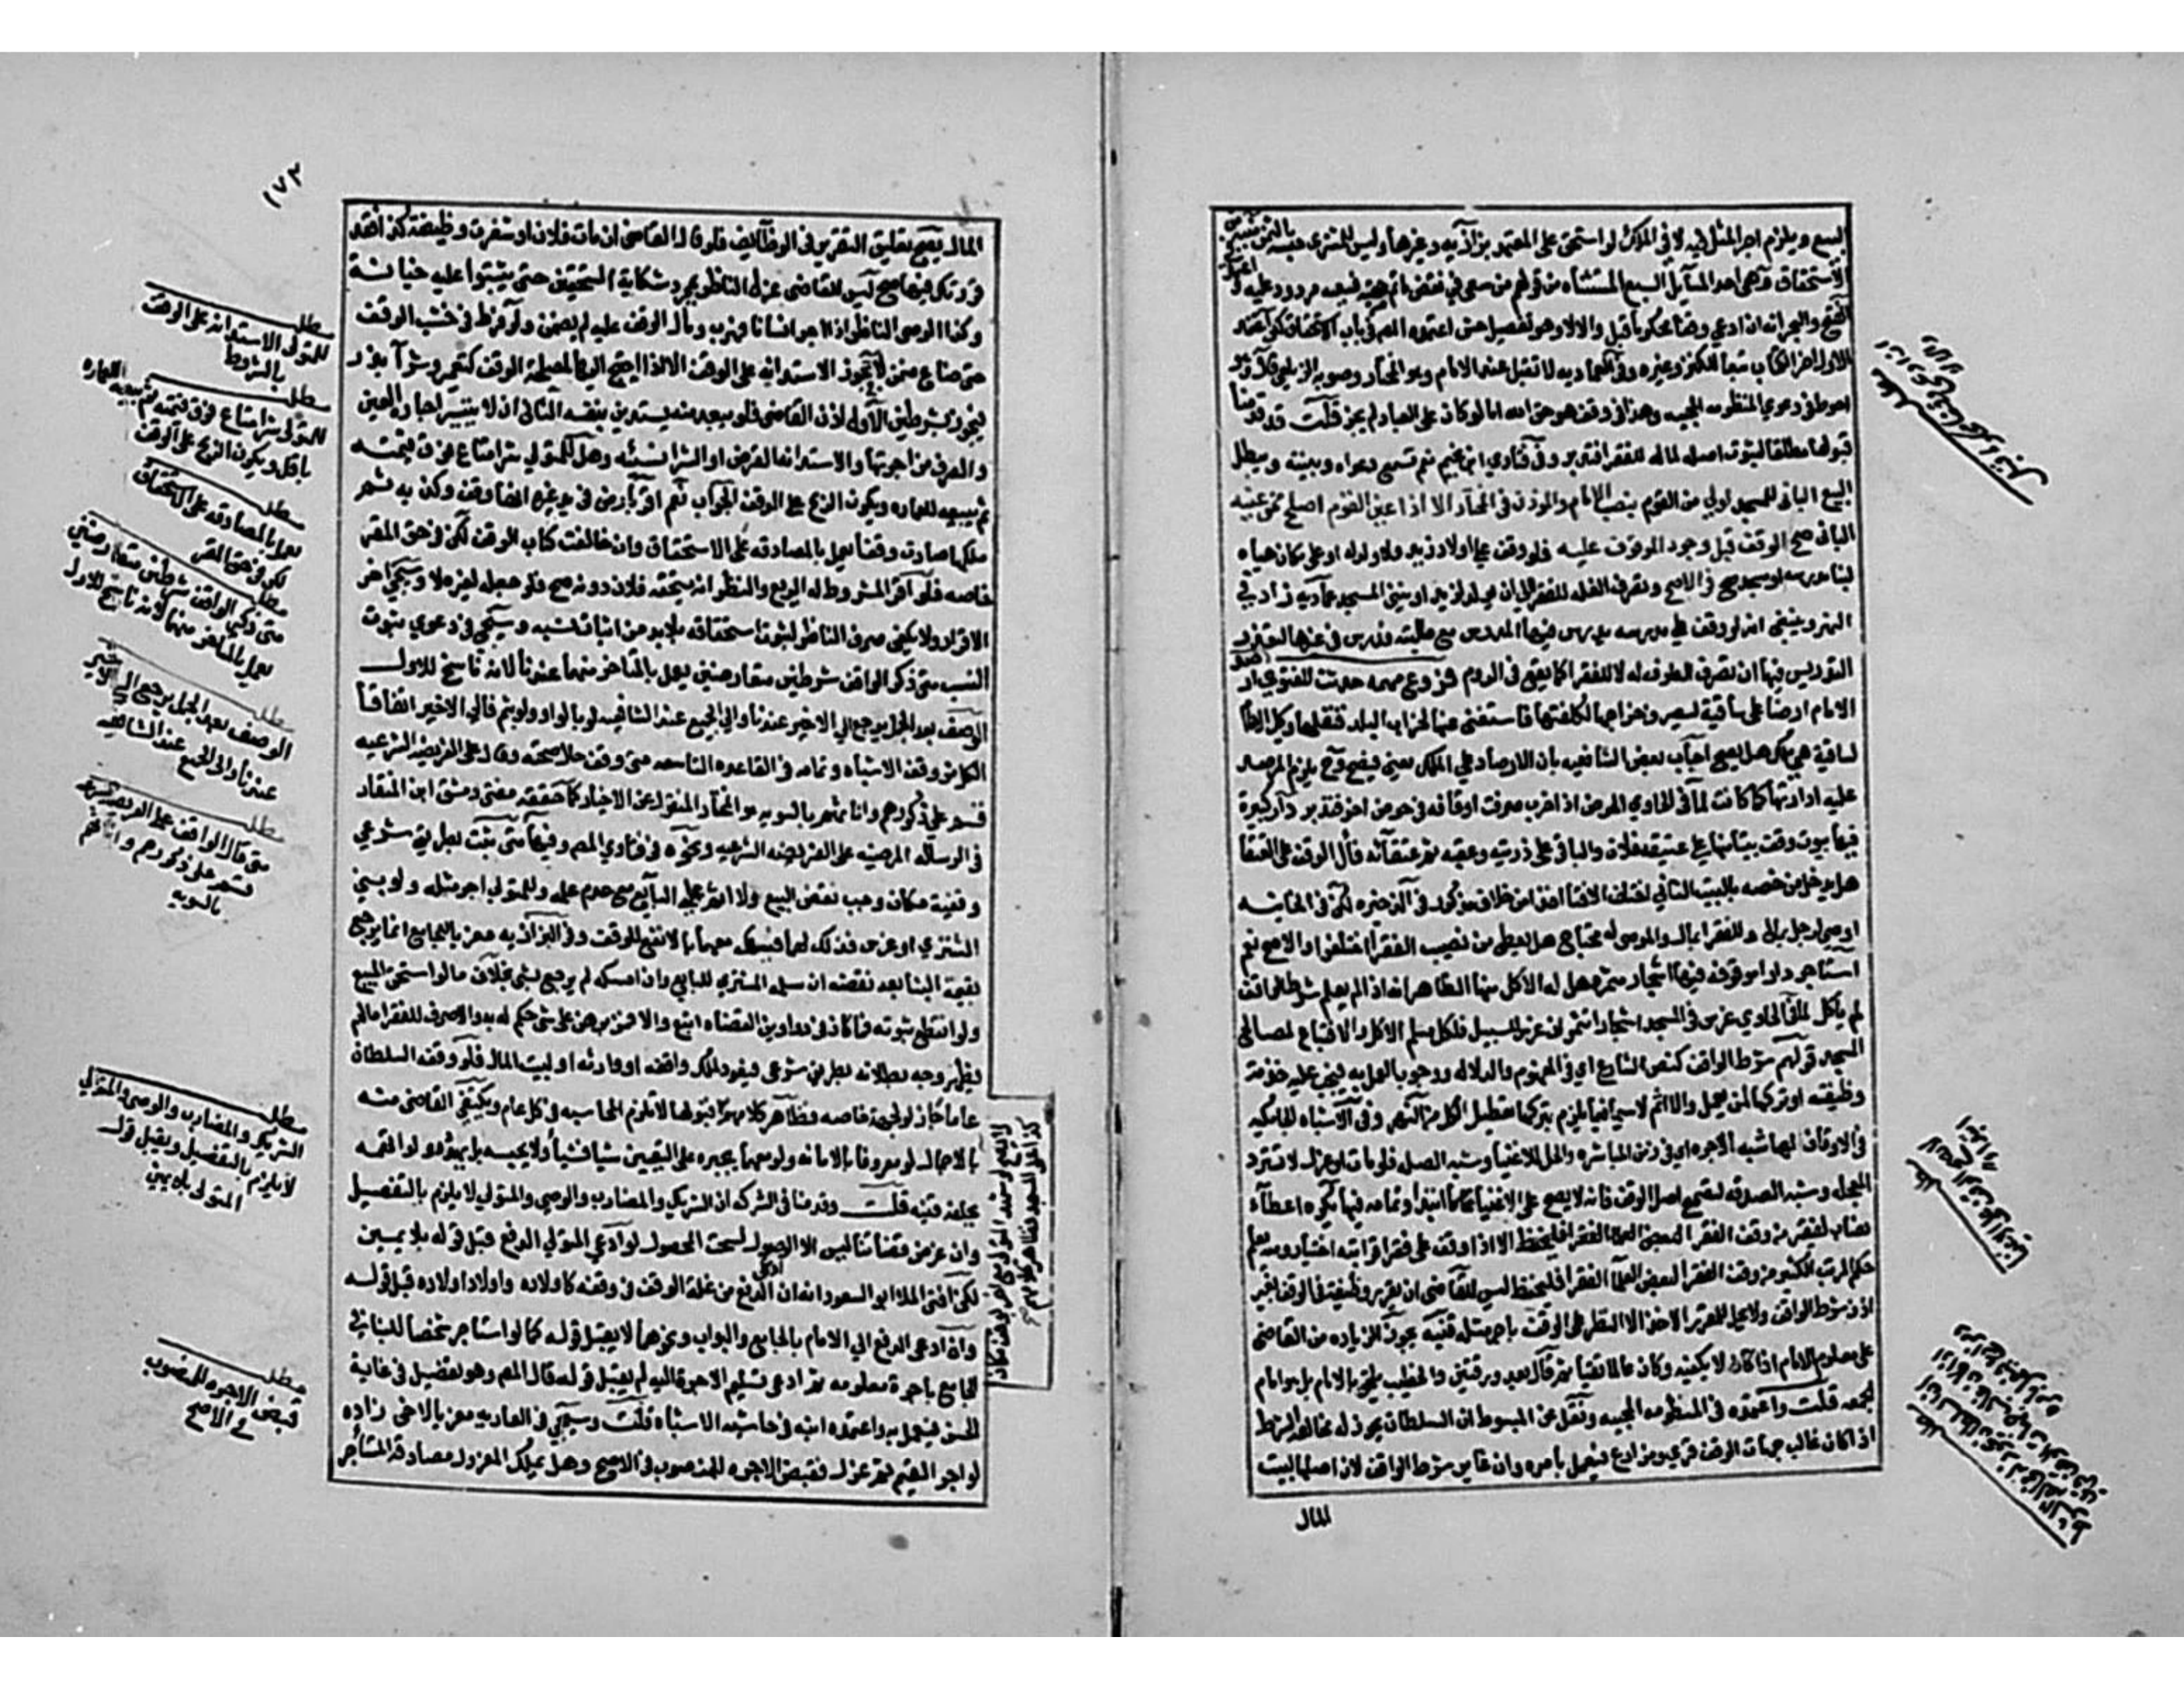 البيع ويلزم اجر المثل فيه لا في الملك لو استحق على المعتمد بزازيه وغيرها وليس للمشتري حبسه بالثمن
الاستحقاق وهي احد المسايل السبع المستثناه من قولهم من سعى في نقض ما تم من جهته فسعيه مردود عليه
الفتح والبحر انه ان ادعى وقفا محكوما قبل والا لا وهو تفصيل حسن اعتمده المص في باب الاستحقاق لكن اعتمد
الاول اخر الكتاب تبعا للكنز وغيره وفي العماديه لا تقبل عند الامام وهو المختار وصوبه الزيلعي قال وهو
احوط وفي دعوى المنظومه المحبيه وهذا في وقف هو حق الله اما لو كان على العباد لم يجز قلت قد قدمنا
قبولها مطلقا لثبوت اصله لماله للفقرا فتدبر وفي فتاوى ابن نجيم نعم تسمع دعواه وبينته ويبطل
البيع الباني للمسجد اولى من القوم بنصب الامام والموذن في المختار الا اذا عين القوم اصلح ممن عينه
الباني صح الوقف قبل وجود الموقوف عليه فلو وقف على اولاد زيد ولا ولد له او على مكان هياه
لبنا مدرسه او مسجد صح في الاصح وتصرف الغله للفقرا الى ان يولد لزيد او يبنى المسجد عماديه زاد في
النهر وينبغي انه لو وقف على مدرسه يدرس فيها المدرس مع طلبته فدرس في غيرها لتعذر
التدريس فيها ان تصرف العلوفه له لا للفقرا كما يقع في الروم فروع مهمه حدثت للفتوى ارصد
الامام ارضا على ساقية ليصرف خراجها لكلفتها فاستغنى عنها لخراب البلد فنقلها وكيل الامام
لساقية هي ملك هل يصح اجاب بعض الشافعيه بان الارصاد على الملك يعني فيصح وح يلزم المرصد
عليه ادارتها كما كانت لما في الحاوي الحوض اذا خرب صرفت اوقافه في حوض اخر فتدبر دار كبيرة
فيها بيوت وقف بيتا منها على عتيقه فلان والباقي على ذريته وعقبه ثم عتقائه فال الوقف على العتقا
هل يدخل من خصه بالبيت الثاني اختلف الافتا اخذا من خلاف مذكور في الذخيره لكن في الخانيه
اوصى لرجل بمال وللفقرا بمال والموصى له محتاج هل يعطى من نصيب الفقرا اختلفوا والاصح نعم
استاجر دارا موقوفه فيها اشجار مثمره هل له الاكل منها الظاهر انه اذا لم يعلم شرط الواقف
لم ياكل لما في الحاوي غرس في المسجد اشجارا تثمر ان غرس للسبيل فلكل مسلم الاكل والا فتباع لمصالح
المسجد قولهم شرط الواقف كنص الشارع اي في المفهوم والدلاله ووجوب العمل به فيجب عليه خدمة
وظيفته او تركها لمن يعمل والا اثم لاسيما فيما يلزم بتركها تعطيل الكل من النهر وفي الاشباه الجامكيه
في الاوقاف لها شبه الاجره اي في زمن المباشره والحل للاغنيا وشبه الصله فلو مات او عزل لا تسترد
المعجله وشبه الصدقه لتصحيح اصل الوقف فانه لا يصح على الاغنيا ابتدا وتمامه فيها يكره اعطاء
نصاب لفقير من وقف الفقرا الا اذا وقف على فقرا قرابته اختيار ومنه يعلم
حكم المرتب الكثير من وقف الفقرا لبعض العلما الفقرا فليحفظ ليس للقاضي ان يقرر وظيفة في الوقف بغير
اذن شرط الواقف ولا يحل للمقرر الاخذ الا النظر على الوقف باجر مثله قنيه تجوز الزياده من القاضي
على معلوم الامام اذا كان لا يكفيه وكان عالما تقيا ثم قال بعد ورقتين والخطيب يلحق بالامام بل هو امام
الجمعه قلت واعتمده في المنظومه المحبيه ونقل عن المبسوط ان السلطان يجوز له مخالفة الشرط
اذا كان غالب جهات الوقف قرى ومزارع فيعمل بامره وان غاير شرط الواقف لان اصلها لبيت
المال
١٧٣
المال يصح تعليق التقرير في الوظايف فلو قال القاضي ان مات فلان او شغرت وظيفة كذا فقد
قررتك فيها صح ليس للقاضي عزل الناظر بمجرد شكاية المستحقين حتى يثبتوا عليه خيانة
وكذا الوصي الناظر اذا اجر انسانا فهرب ومال الوقف عليه لم يضمن ولو فرط في خشب الوقف
حتى ضاع ضمن لا تجوز الاستدانه على الوقف الا اذا احتيج اليها لمصلحة الوقف كتعمير وشرا بذر
فيجوز بشرطين الاول اذن القاضي فلو يبعد منه يستدين بنفسه الثاني ان لا يتيسر اجارة العين
والصرف من اجرتها والاستدانه القرض او الشرا نسيئه وهل للمتولي شرا متاع فوق قيمته
ثم يبيعه للعماره ويكون الربح على الوقف الجواب نعم اقر بارض في يد غيره انها وقف وكذبه ثم
ملكها صارت وقفا يعمل بالمصادقه على الاستحقاق وان خالفت كتاب الوقف لكن في حق المقر
خاصه فلو اقر المشروط له الريع والنظر انه يستحقه فلان دونه صح فلو جعله لغيره لا وسيجي اخر
الاقرار ولا يكفي صرف الناظر لثبوت استحقاقه بل لا بد من اثبات نسبه وسيجي في دعوى ثبوت
النسب متى ذكر الواقف شرطين متعارضين يعمل بالمتاخر منهما عندنا لانه ناسخ للاول
الوصف بعد الجمل يرجع الى الاخير عندنا والى الجميع عند الشافعيه لو بالواو ولو بثم فالى الاخير اتفاقا
الكل من وقف الاشباه وتمامه في القاعده التاسعه متى وقف حال صحته وقال على الفريضه الشرعيه
قسم على ذكورهم واناثهم بالسويه هو المختار المنقول عن الاخيار كما حققه مفتي دمشق ابن المنقار
في الرساله المرضيه على الفريضه الشرعيه ونحوه في فتاوى المص وفيها متى ثبت بطريق شرعي
وقفية مكان وجب نقض البيع ولا اثم على البايع مع عدم علمه وللمتولي اجر مثله ولو بنى
المشتري او غرس فذلك لهما فيسلك معهما بالانفع للوقف وفي البزازيه معزيا للجامع انما يرجع
بقيمة البنا بعد نقضه ان سلمه المشتري للبايع وان امسكه لم يرجع بشي بخلاف ما لو استحق المبيع
ولو انقطع ثبوته فما كان في دواوين القضاه اتبع والا فمن برهن على شي حكم له به والا صرف للفقرا ما لم
يظهر وجه بطلانه بطريق شرعي فيعود لملك واقفه او وارثه او لبيت المال فلو وقفه السلطان
عاما جاز لو لجهة خاصه فظاهر كلامهم لا تلزم المحاسبه في كل عام ويكتفي القاضي منه
بالاجمال لو معروفا بالامانه ولو متهما يجبره على التعيين شيا فشيا ولا يحبسه بل يهدده ولو اتهمه
يحلفه قنيه قلت وقدمنا في الشركه ان الشريك والمضارب والوصي والمتولي لا يلزم بالتفصيل
وان غرض قضاتنا ليس الا الوصول لسحت المحصول لو ادعى المتولي الدفع قبل قوله بلا يمين
لكن افتى المنلا ابو السعود انه ان ادعى الدفع من غلة الوقف لمن وقفه كاولاده واولاد اولاده قبل قوله
وان ادعى الدفع الى الامام بالجامع والبواب ونحوهما لا يقبل قوله كما لو استاجر شخصا للبنا في
الجامع باجرة معلومه ثم ادعى تسليم الاجره اليه لم يقبل قوله قال المص وهو تفصيل في غاية
الحسن فيعمل به واعتمده ابنه في حاشية الاشباه قلت وسيجي في العاريه معزيا لاخي زاده
لو اجر القيم ثم عزل فقبض الاجره للمنصوب في الاصح وهل يملك المعزول مصادقة المستاجر
مطلب
للمتولي الاستدانه على الوقف
بالشروط
مطلب
للمتولي شرا متاع فوق قيمته ثم يبيعه للعماره
ويكون الربح على الوقف
مطلب
يعمل بالمصادقه على الاستحقاق
لكن في حق المقر
مطلب
متى ذكر الواقف شرطين متعارضين
يعمل بالمتاخر منهما لانه ناسخ للاول
مطلب
الوصف بعد الجمل يرجع الى الاخير
عندنا والى الجميع عند الشافعيه
مطلب
متى قال الواقف على الفريضه الشرعيه
قسم على ذكورهم واناثهم
بالسويه
مطلب
الشريك والمضارب والوصي والمتولي
لا يلزم بالتفصيل ويقبل قول
المتولي بلا يمين
مطلب
قبض الاجره للمنصوب
في الاصح